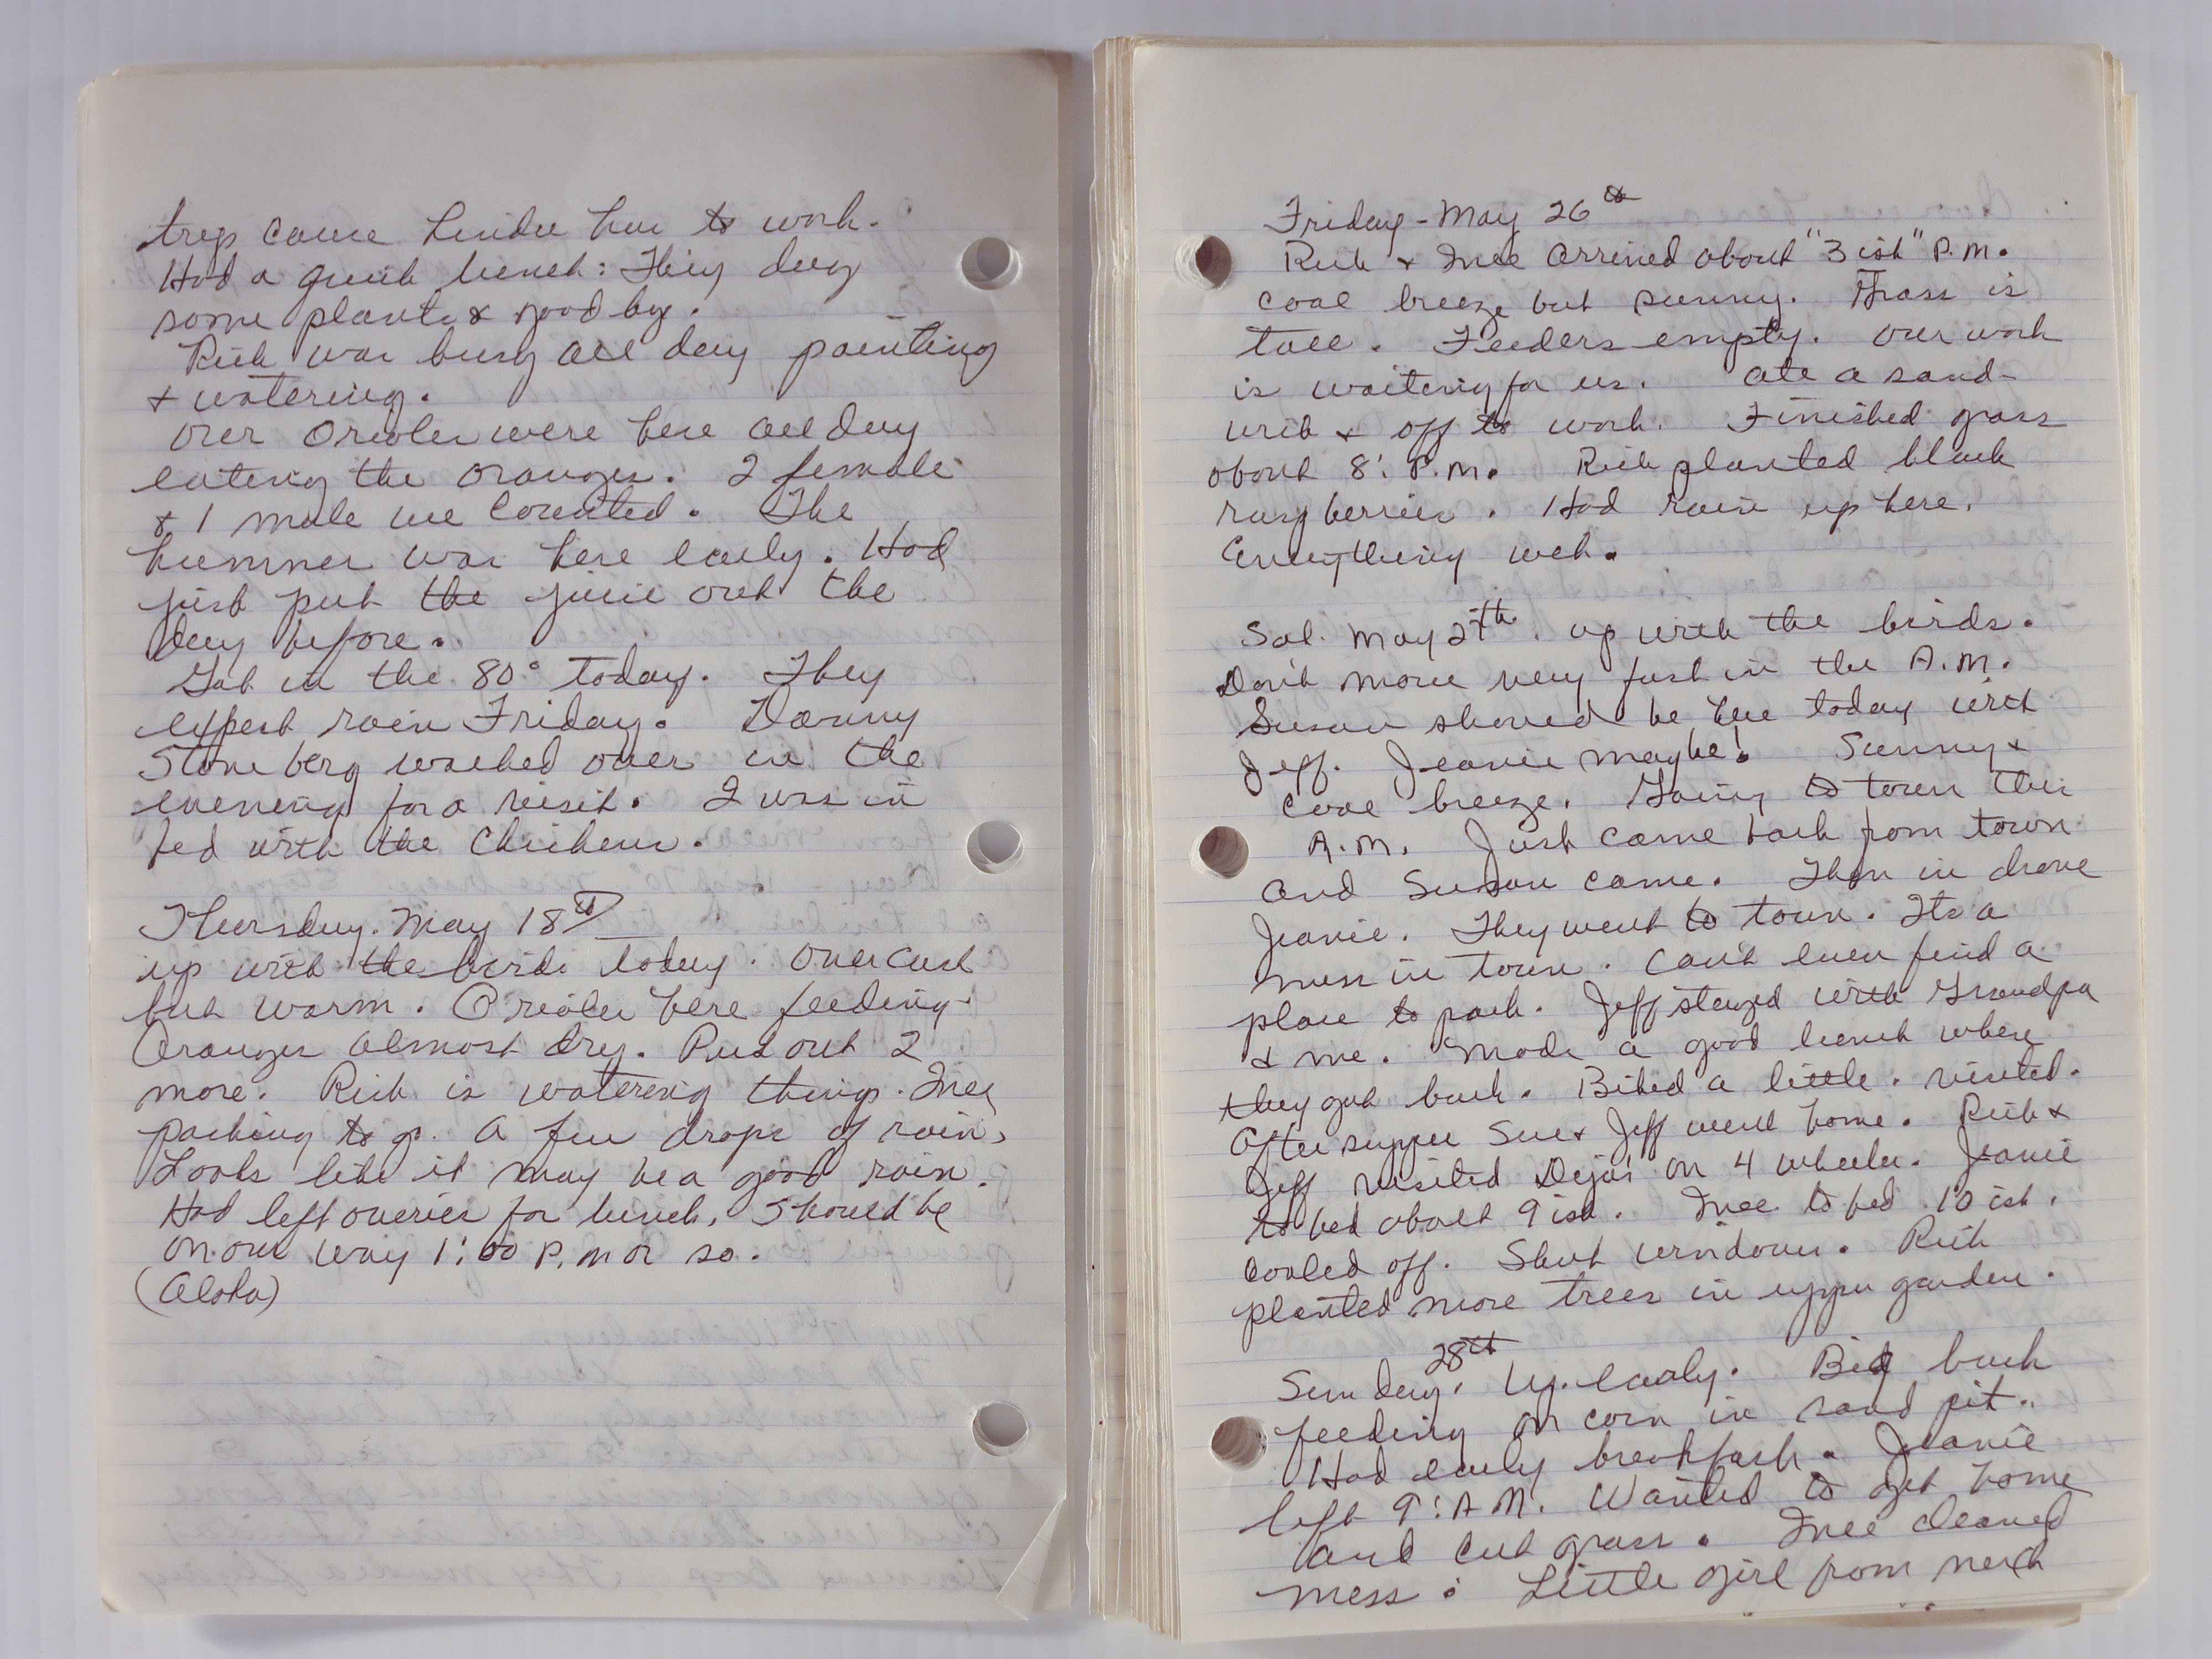 trip came Linda has to work.
Had a quick lunch: They dug
some plants & good by.
Rich was busy all day painting
& watering.
Our Orioles were here all day
eating the oranges. 2 female
& 1 male we counted. The
hummer was here early. Had
just put the juice out the
day before.
Got in the 80° today. They
expect rain Friday. Danny
Stoneberg walked over in the
evening for a visit. I was in
bed with the Chickens.
Thursday. May 18th
up with the birds today. Overcast
but warm. Orioles here feeding.
Oranges almost dry. Put out 2
more. Rich is watering things. Inez
packing to go. A few drops of rain,
Looks like it may be a good rain.
Had left overies for lunch, should be
on our way 1:00 P.M or so.
(Aloha)
Friday - May 26th
Rich & Inez arrived about "3 ish" P.M.
Cool breeze but sunny. Grass is
tall. Feeders empty. Our work
is waitering for us. Ate a sand-
wich & off to work. Finished grass
about 8: P.M. Rich planted black
raspberries. Had rain up here.
Everything wet.
Sat. May 27th. up with the birds.
Don't move very fast in the A.M.
Susan should be here today with
Jeff. Jeanie maybe! Sunny &
cool breeze. Going to town this
A.M. Just came back from town
and Susan came. Then in drove
Jeanie. They went to town. Its a
mess in town. Can't even find a
place to park. Jeff stayed with Grandpa
& me. Made a good lunch when
they got back. Biked a little. visited.
After supper Sue & Jeff went home. Rich &
Jeff visited Deja's on 4 wheeler. Jeanie
to bed about 9 ish. Inez to bed 10 ish.
Cooled off. Shut windows. Rich
planted more trees in upper garden.
Sunday. 28th Up early. Big buck
feeding on corn in sand pit..
Had early breakfast. Jeanie
left 9: A.M. Wanted to get home
and cut grass. Inez cleaned
mess. Little girl from next